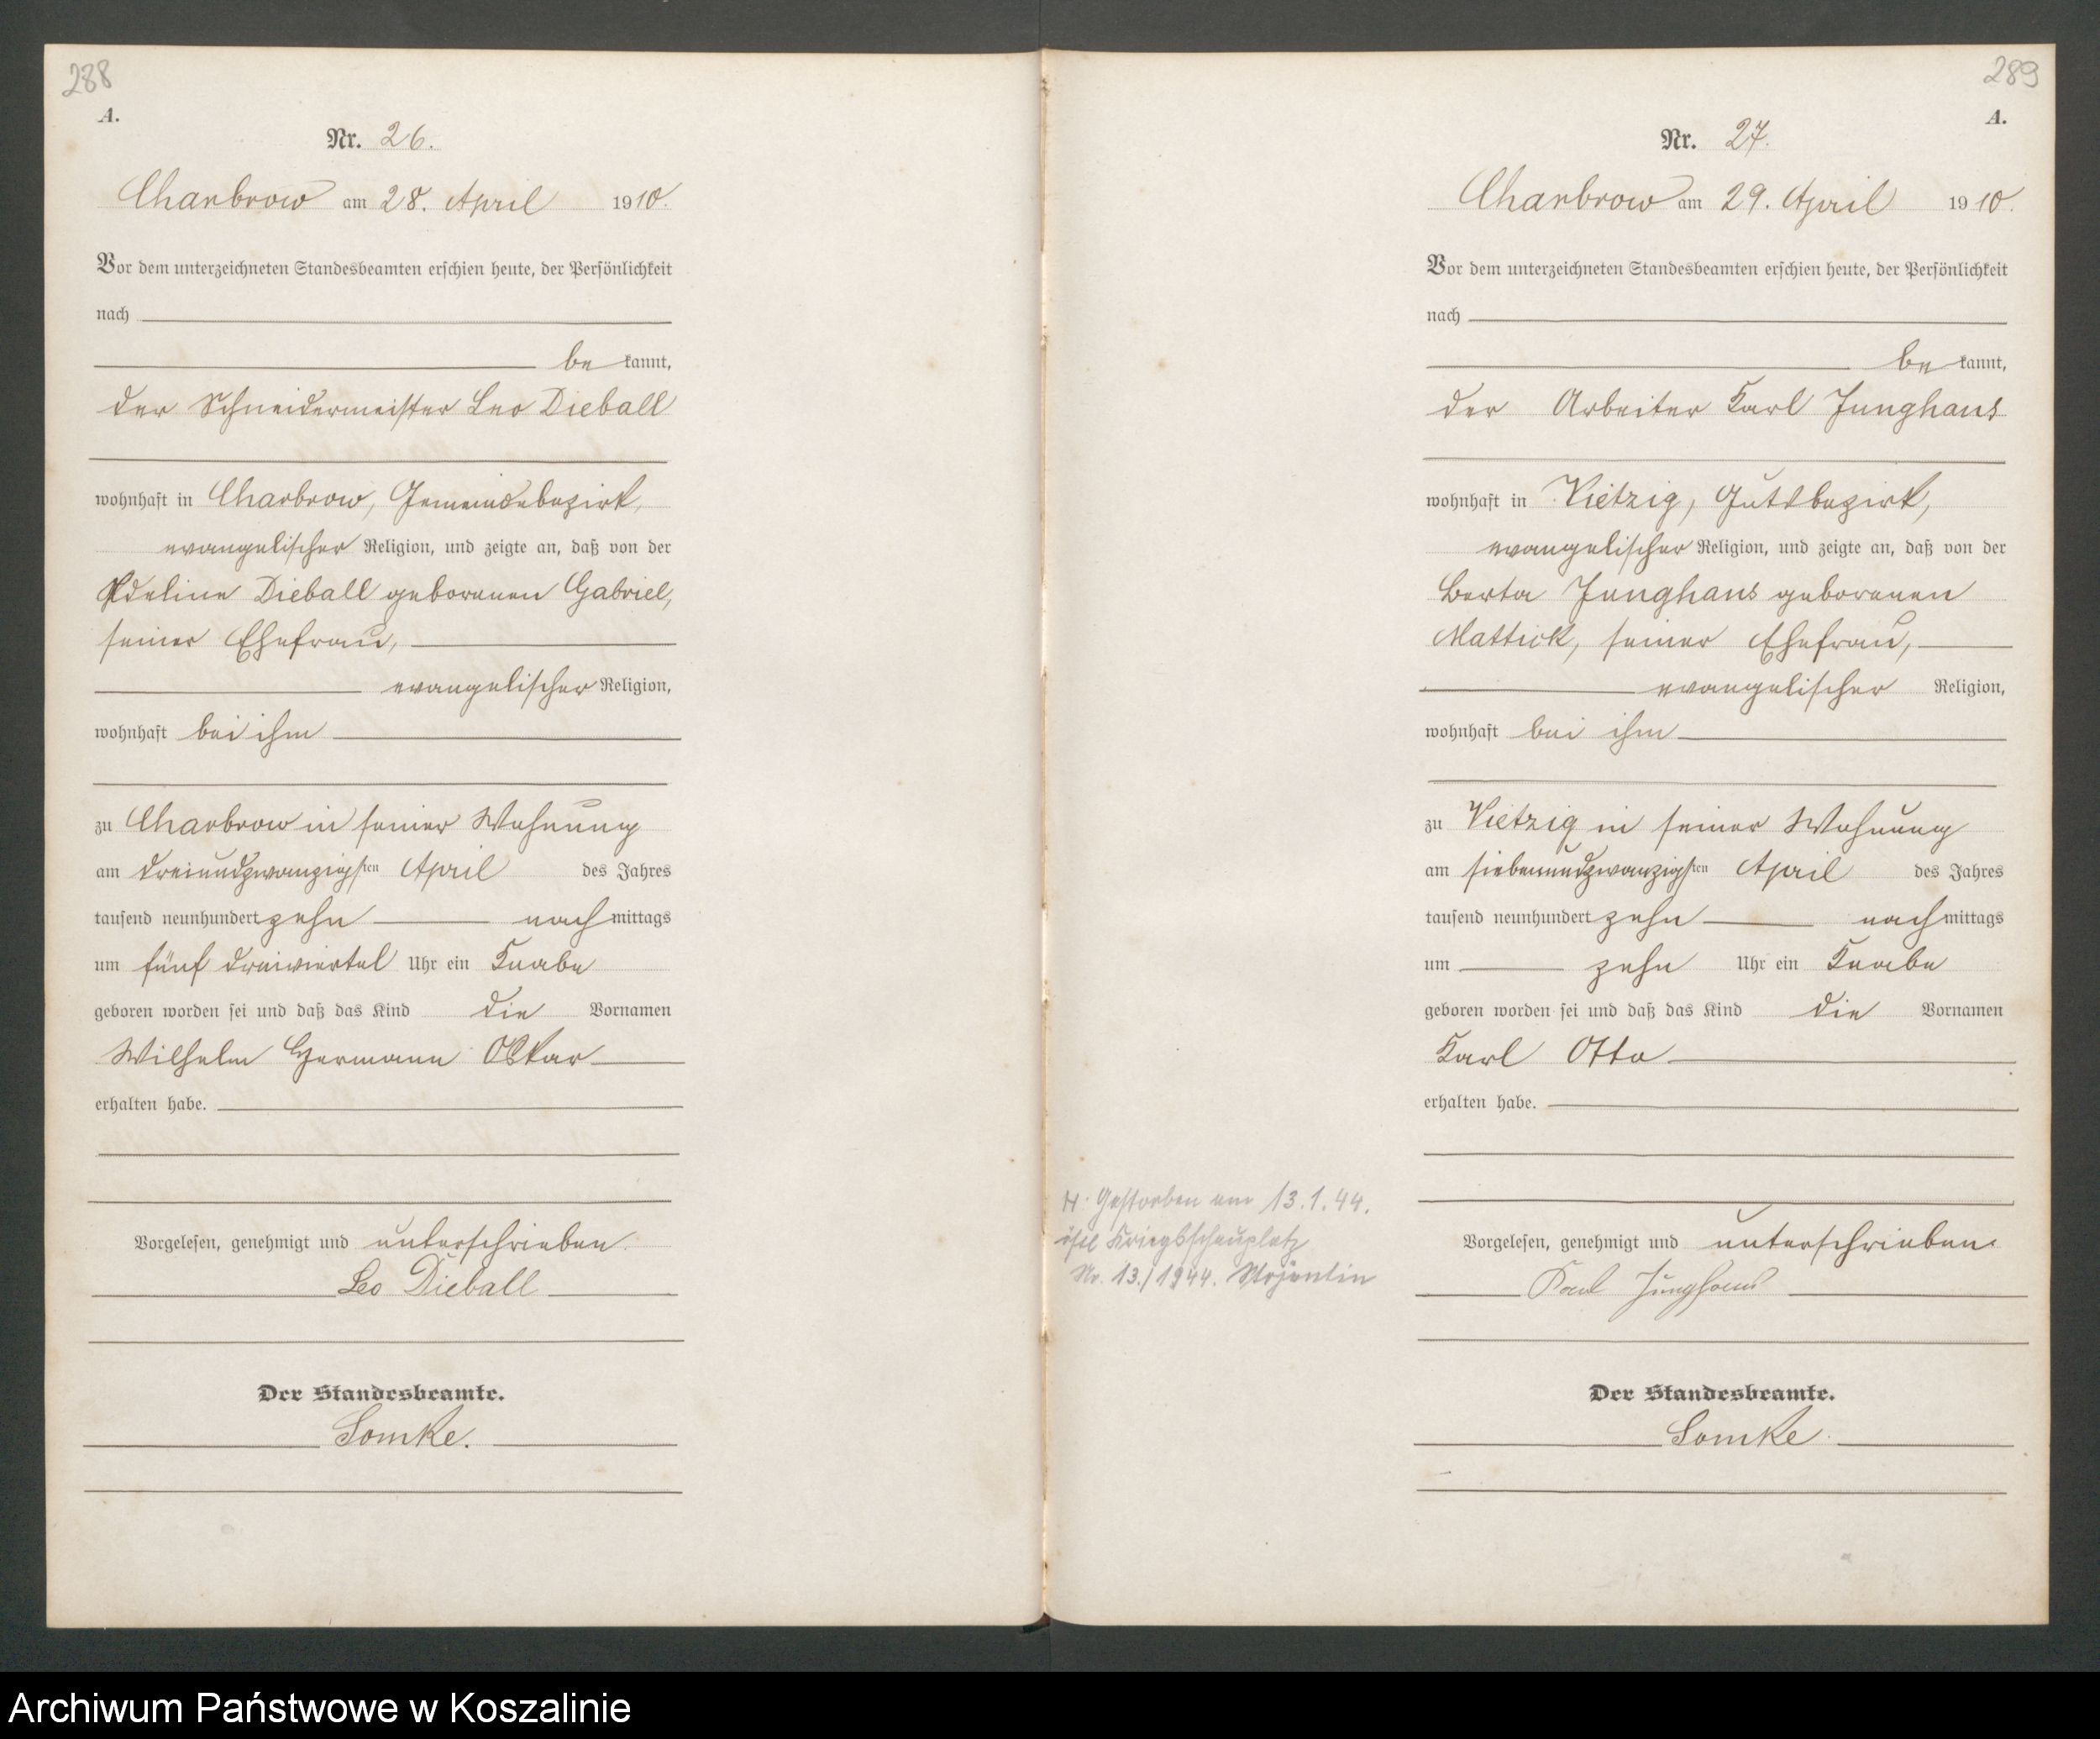 288
A.
Nr. 26.
Charbrow am 28. April 1910.
Vor dem unterzeichneten Standesbeamten erschien heute, der Persönlichkeit
nach
be kannt,
der Schneidermeister Leo Dieball
wohnhaft in Charbrow, Gemeindebezirk,
evangelischer Religion, und zeigte an, daß von der
Adeline Dieball geborenen Gabriel,
seiner Ehefrau,
evangelischer Religion,
wohnhaft bei ihm
zu Charbrow in seiner Wohnung
am dreiundzwanzigsten April des Jahres
tausend neunhundert zehn nach mittags
um fünf dreiviertel Uhr ein Knabe
geboren worden sei und daß das Kind die Vornamen
Wilhelm Hermann Oskar
erhalten habe.
Vorgelesen, genehmigt und unterschrieben.
Leo Dieball
Der Standesbeamte.
Lomke.
289
A.
Nr. 27.
Charbrow am 29. April 1910.
Vor dem unterzeichneten Standesbeamten erschien heute, der Persönlichkeit
nach
be kannt,
der Arbeiter Karl Junghans
wohnhaft in Vietzig, Gutsbezirk,
evangelischer Religion, und zeigte an, daß von der
Berta Junghans geborenen
Mattick, seiner Ehefrau,
evangelischer Religion,
wohnhaft bei ihm
zu Vietzig in seiner Wohnung
am siebenundzwanzigsten April des Jahres
tausend neunhundert zehn nach mittags
um zehn Uhr ein Knabe
geboren worden sei und daß das Kind die Vornamen
Karl Otto
erhalten habe.
Gestorben am 13.1.44.
östl Kriegsschauplatz
Nr. 13./1944.
Vorgelesen, genehmigt und unterschrieben.
Karl Junghans
Der Standesbeamte.
Lomke.
Archiwum Państwowe w Koszalinie